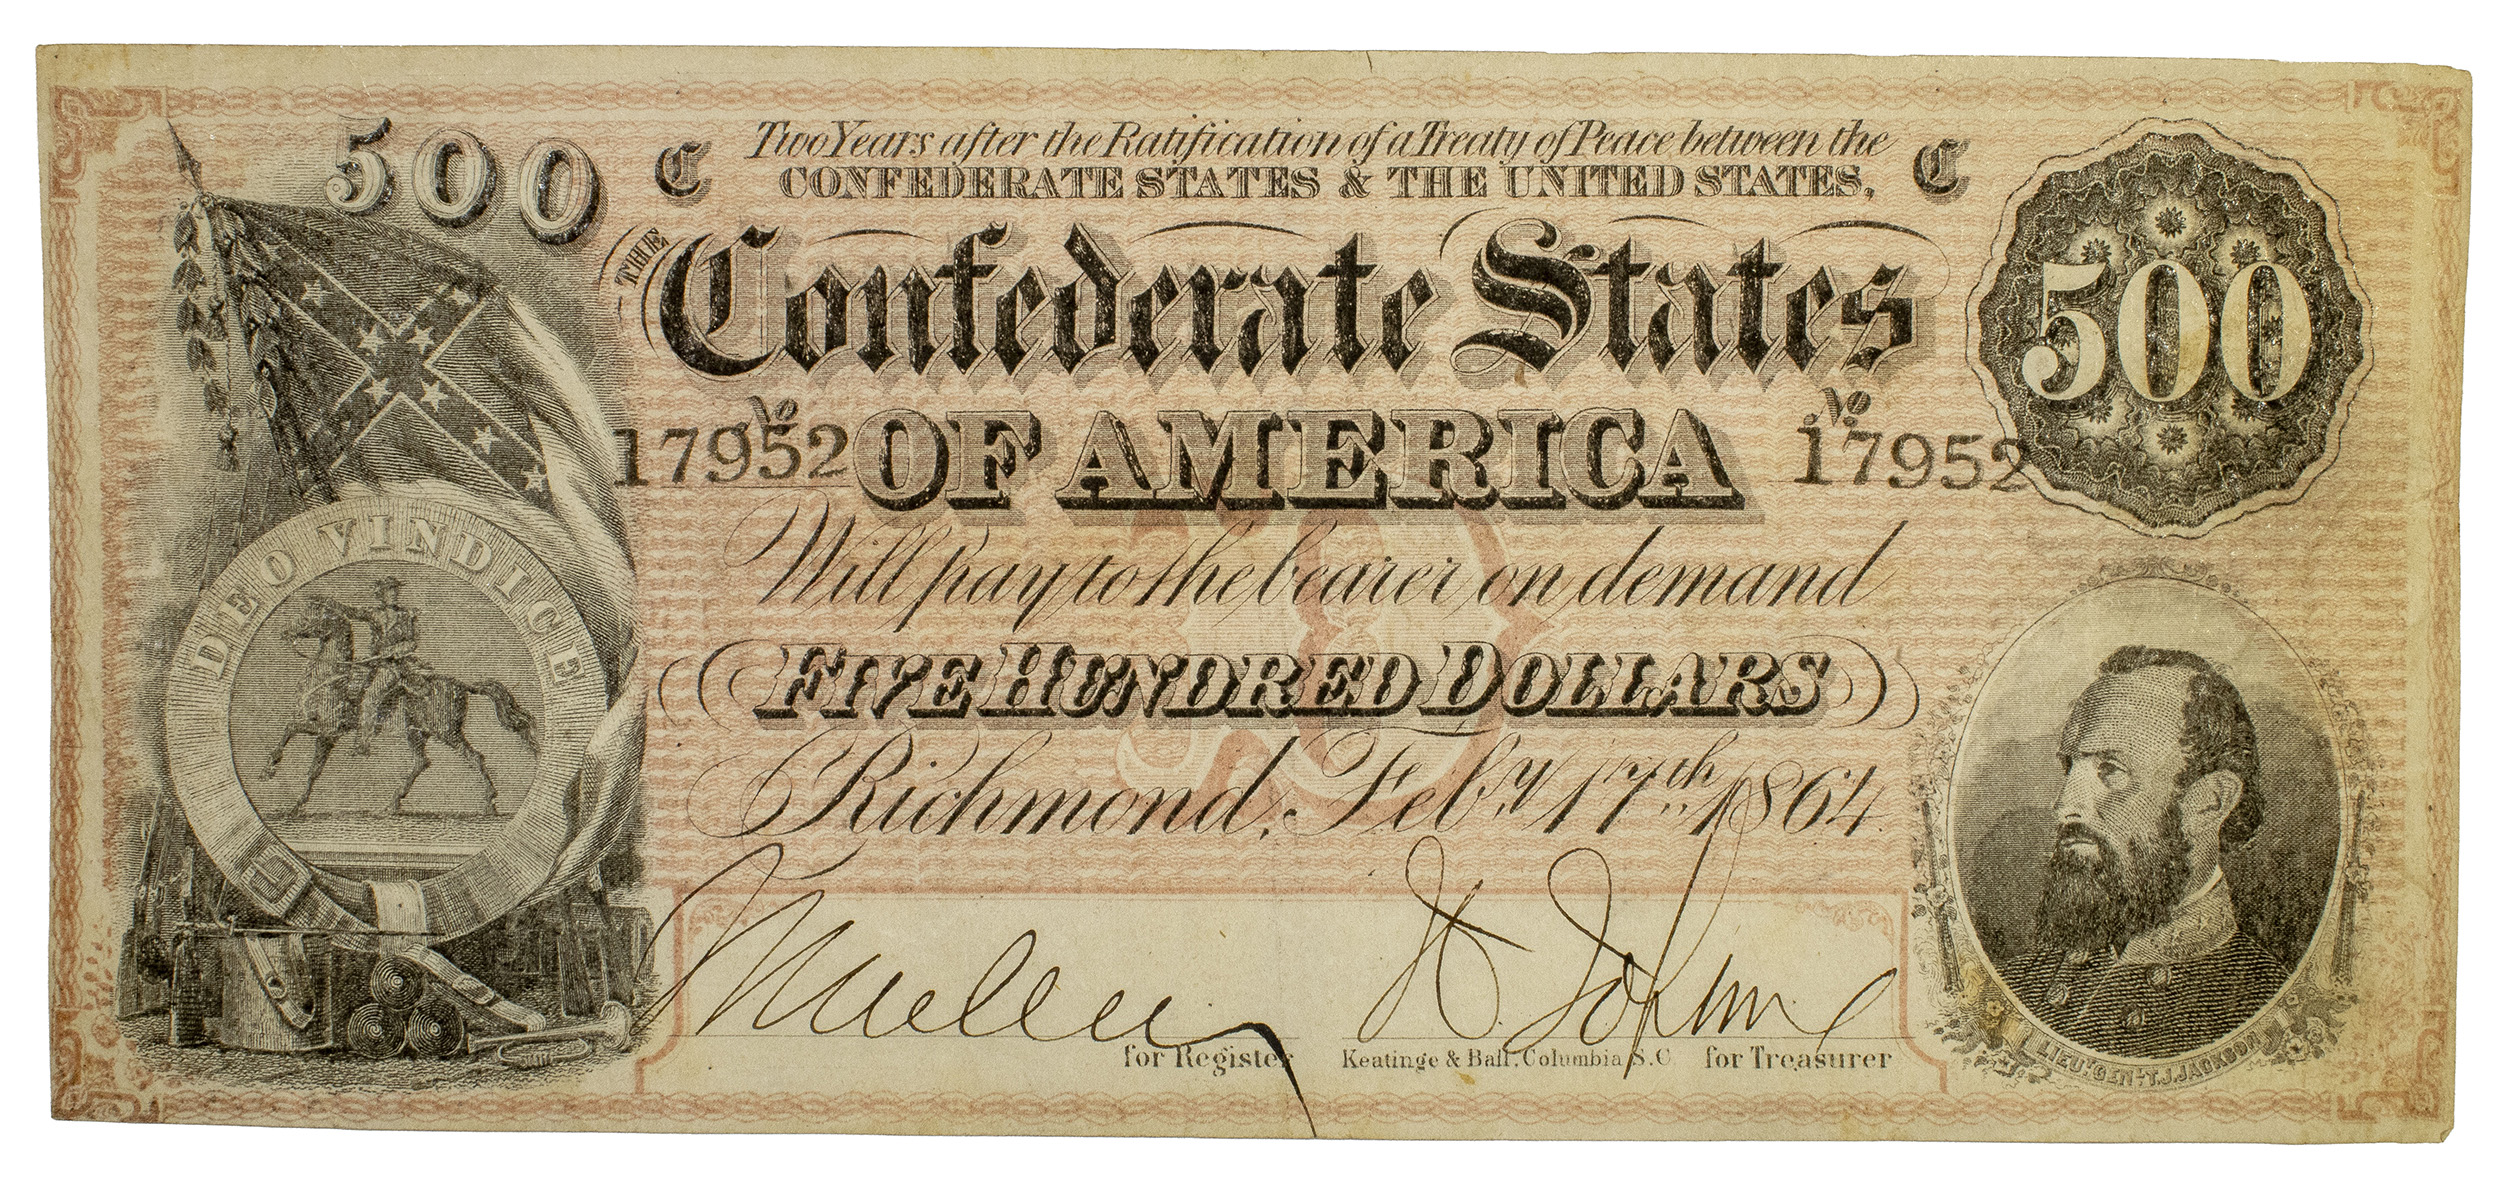 500 C Two Years after the Ratification of a Treaty of Peace between the C
CONFEDERATE STATES & THE UNITED STATES,
THE Confederate States
500
No 17952 OF AMERICA No 17952
Will pay to the bearer on demand
DEO VINDICE
FIVE HUNDRED DOLLARS
Richmond, Feby. 17th. 1864.
for Register Keatinge & Ball, Columbia S.C. for Treasurer
LIEUT. GENL. T.J. JACKSON